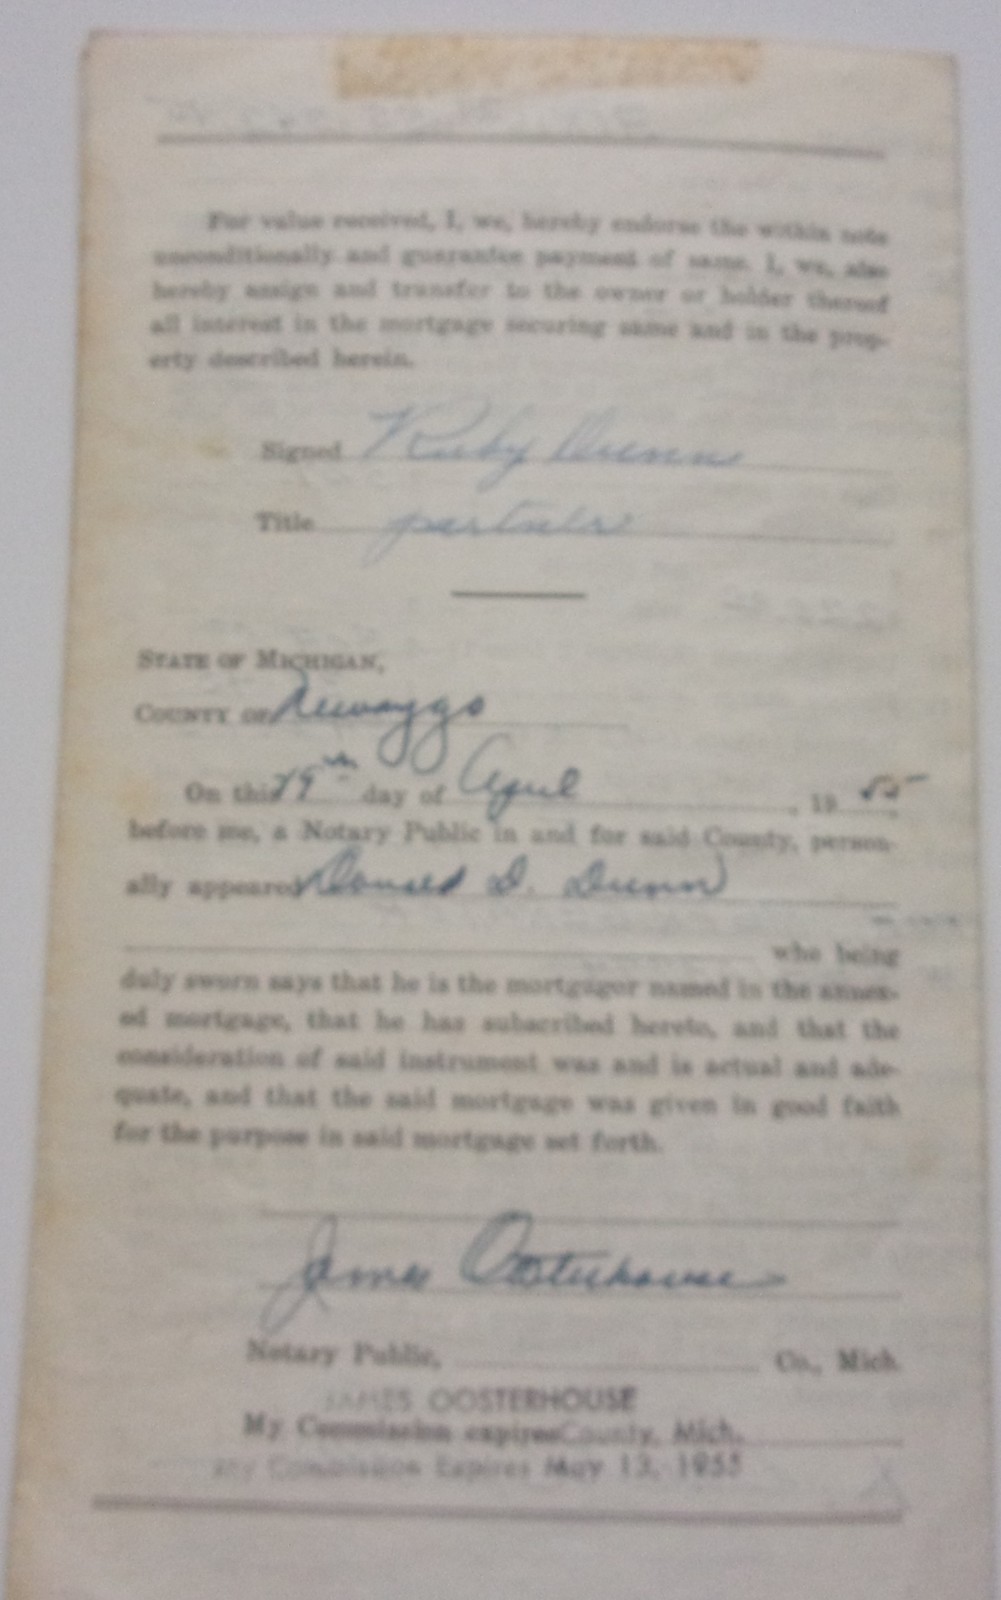 For value received, I, we, hereby endorse the within note
unconditionally and guarantee payment of same. I, we, also
hereby assign and transfer to the owner or holder thereof
all interest in the mortgage securing same and in the prop-
erty described herein.
Signed Ruby Dunn
Title partner
STATE OF MICHIGAN,
COUNTY OF Newaygo
On this 29th day of April, 19 55
before me, a Notary Public in and for said County, person-
ally appeared Donald D. Dunn
who being
duly sworn says that he is the mortgagor named in the annex-
ed mortgage, that he has subscribed hereto, and that the
consideration of said instrument was and is actual and ade-
quate, and that the said mortgage was given in good faith
for the purpose in said mortgage set forth.
James Oosterhouse
Notary Public, Co., Mich.
JAMES OOSTERHOUSE
My Commission expires County, Mich.
My Commission Expires May 13, 1955